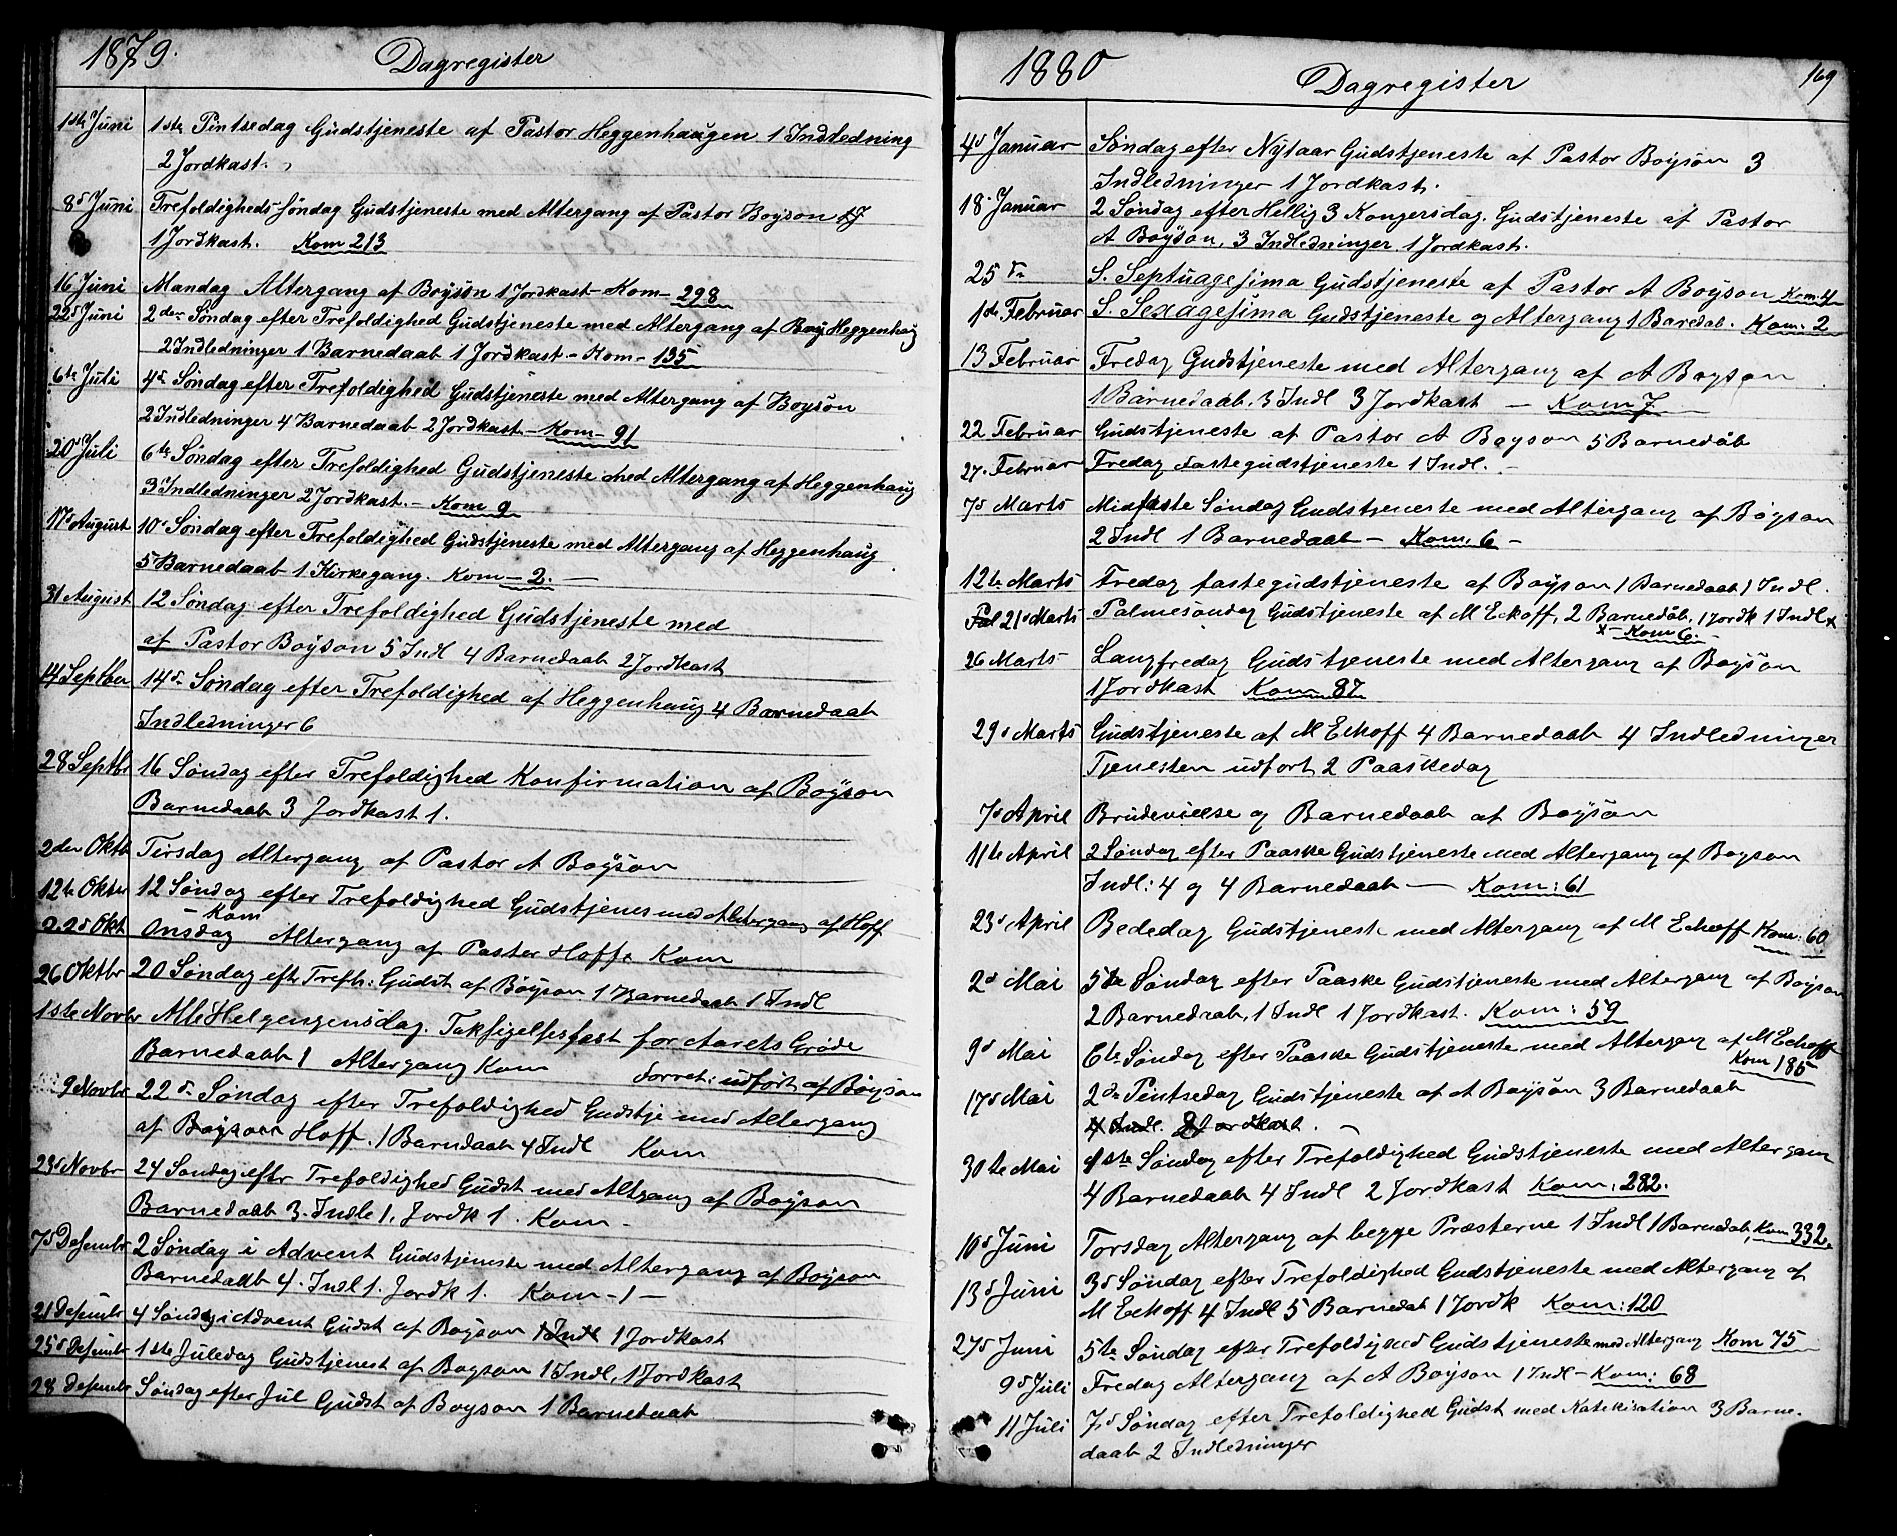 1879.
Dagregister
1ste Juni 1ste Pintsedag Gudstjeneste af Pastor Heggenhaugen 1 Indledning
2 Jordkast.
8d Juni Trefoldigheds-Søndag Gudstjeneste med Altergang af Pastor Boyson
1 Jordkast. Kom 213
16 Juni Mandag Altergang af Boyson 1 Jordkast - Kom - 298
22d Juni 2den Søndag efter Trefoldighed Gudstjeneste med Altergang af Heggenhaug
2 Indledninger 1 Barnedaab 1 Jordkast - Kom - 135
6te Juli 4d Søndag efter Trefoldighed Gudstjeneste med Altergang af Boyson
2 Indledninger 4 Barnedaab 2 Jordkast - Kom - 91
20d Juli 6te Søndag efter Trefoldighed Gudstjeneste med Altergang af Heggenhaug
3 Indledninger 2 Jordkast. - Kom 9
17d August 10d Søndag efter Trefoldighed Gudstjeneste med Altergang af Heggenhaug
5 Barnedaab 1 Kirkegang. Kom - 2. -
31 August 12 Søndag efter Trefoldighed Gudstjeneste med
af Pastor Boyson 5 Indl 4 Barnedaab 2 Jordkast
14 Septber 14d Søndag efter Trefoldighed af Heggenhaug 4 Barnedaab
Indledninger 6
28 Septbr 16 Søndag efter Trefoldighed Konfirmation af Boyson
Barnedaab 3 Jordkast 1.
2den Oktb Tirsdag Altergang af Pastor A Boyson
12te Oktbr 12 Søndag efter Trefoldighed Gudstjenes med Altergang af Hoff
- Kom
22d Okt Onsdag Altergang af Pastor Hoff. Kom
26 Oktbr 20 Søndag eftr Trefh: Gudst af Boyson 1 Barnedaab 1 Indl
1ste Novbr Alle Helgengensdag. Taksigelsesfest for Aarets Grøde
Barnedaab 1 Altergang Kom Forret: udført af Boyson
9 Novbr 22d Søndag efter Trefoldighed Gudstje med Altergang
af Boyson Hoff. 1 Barndaab 4 Indl Kom
23d Novbr 24 Søndag eftr Trefoldighed Gudst med Altgang af Boyson
Barnedaab 3. Indle 1, Jordk 1. Kom -
7d Desembr 2 Søndag i Advent Gudstjeneste med Altergang af Boyson
Barnedaab 4. Indl 1. Jordk 1. Kom - 1 -
21 Desembr 4 Søndag i Advent Gudst af Boyson 1 Indl 1 Jordkast
25d Desembr 1ste Juledag Gudstjenest af Boyson 1 Indl, 1 Jordkast
28 Desembr Søndag efter Jul Gudst af Boyson 1 Barnedaab
1880
Dagregister
169
4d Januar Søndag efter Nytaar Gudstjeneste af Pastor Boyson 3
Indledninger 1 Jordkast.
18 Januar 2 Søndag efter Hellig 3 Kongersdag. Gudstjeneste af Pastor
A Boyson, 3 Indledninger 1 Jordkast.
25d S. Septuagesima Gudstjeneste af Pastor A Boyson
1ste Februar S. Sexagesima Gudstjeneste og Altergang 1 Baredab. Kom: 2
13 Februar Fredag Gudstjeneste med Altergang af A Boyson
1 Barnedaab. 3 Indl 3 Jordkast - Kom 7
22 Februar Gudstjeneste af Pastor A Boyson 5 Barnedåb
27. Februar Fredag Fastegudstjeneste 1 Indl. -
7d Marts Midfaste Søndag Gudstjeneste med Altergang af Boyson
2 Indl 1 Barnedaab - Kom. 6 -
12te Marts Fredag fastegudstjeneste af Boyson 1 Barnedaab 1 Indl.
Pal 21d Marts Palmesøndag Gudstjeneste af M Eckoff, 2 Barnedåb, 1 Jordk 1 Indl x
x - Kom 6. -
26 Marts Langfredag Gudstjeneste med Altergang af Boyson
1 Jordkast Kom 87
29d Marts Gudstjeneste af M Eckoff 4 Barnedaab 4 Indledninger
Tjenesten udført 2 Paaskedag
7d April Brudevielse og Barnedaab af Boyson
11te April 2 Søndag efter Paaske Gudstjeneste med Altergang af Boyson
Indl: 4 og 4 Barnedaab - Kom: 61
23d April Bededag Gudstjenest med Altergang af M Eckoff Kom: 60
2d Mai 5te Søndag efter Paaske Gudstjeneste med Altergang af Boyson
2 Barnedaab, 1 Indl 1 Jordkast. Kom: 59
9d Mai 6te Søndag efter Paaske Gudstjeneste med Altergang af M Eckoff
Kom 185
17d Mai 2d Pintsedag Gudstjeneste af A Boyson 3 Barnedaab
4 Indl. 2 Jordkast. -
30te Mai 1ste Søndag efter Trefoldighed Gudstjeneste med Altergan
4 Barnedaab 4 Indl 2 Jordkast Kom: 282.
10d Juni Torsdag Altergang af begge Præsterne 1 Indl 1 Barnedab, Kom 332.
13d Juni 3d Søndag efter Trefoldighed Gudstjeneste med Altergang af
M Eckoff 4 Indl 5 Barnedab 1 Jordk Kom: 120
27d Juni 5te Søndag efter Trefoldighed Gudstjeneste med Altergang Kom 75
9d Juli Fredag Altergang af A Boyson 1 Indl - Kom: 68
11 Juli 7d Søndag efter Trefoldighed Gudst med Katekisation 3 Barne-
daab 2 Indledninger